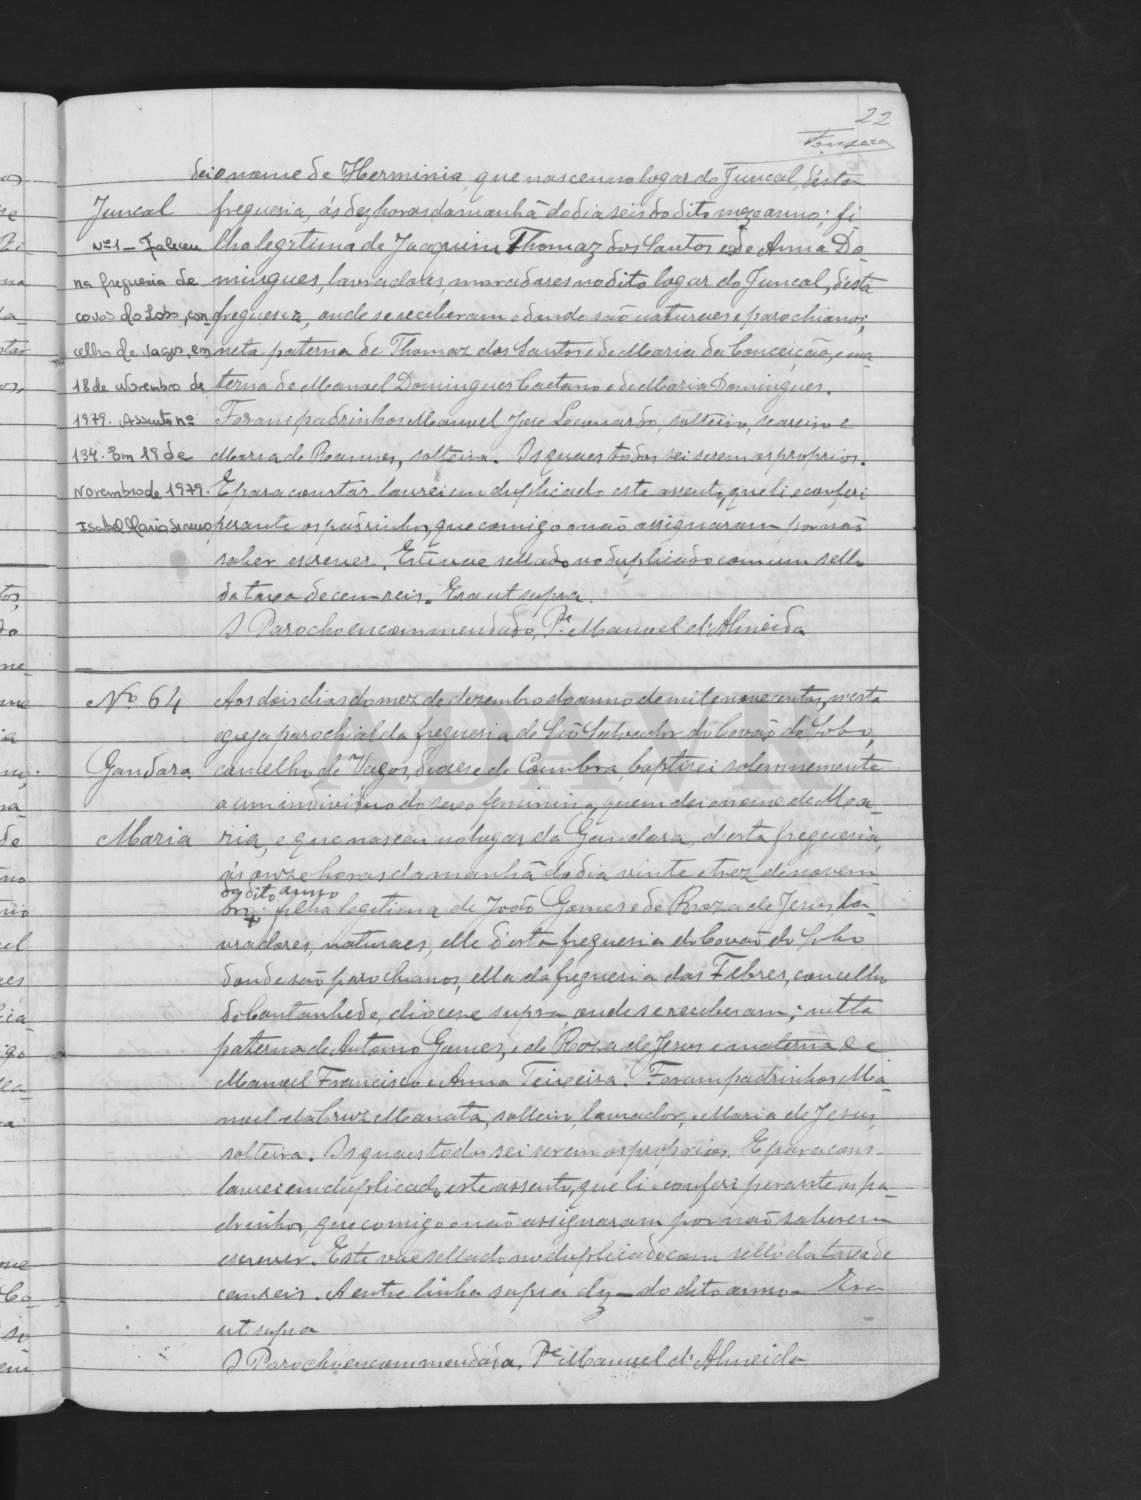 22
Fonseca
dei o nome de Herminia, que nasceu no logar do Juncal, désta
Juncal
freguesia, ás dez horas da manhã do dia seis do dito mez e anno; fi
lha legitima de Joaquim Thomaz dos Santos e de Anna Do-
mingues, lavradores, moradores no dito logar do Juncal, désta
freguesia, onde se receberam e donde são naturaes e parochianos;
neta paterna de Thomaz dos Santos e de Maria da Conceição, e ma
terna de Manuel Domingues Caetano e de Maria Domingues.
Foram padrinhos Manuel José Leonardo, solteiro, e
Maria de Ramos, solteira. Os quaes todos sei serem os proprios.
E para constar lavrei em duplicado este assento, que li e conferi
perante os padrinhos, que comigo o não assignaram por não
saber escrever. Este vae sellado no duplicado com um sello
da taxa de cem reis. Era ut supra.
O Parocho encommendado, Pe. Manuel d'Almeida
Nº 1 - Faleceu
na freguesia de
covão do Lobo, con-
celho de Vagos, em
18 de Novembro de
1979. Assento nº
134. Em 19 de
Novembro de 1979.
Nº 64
Gandara
Maria
Aos dois dias do mez de dezembro do anno de mil e novecentos, nesta
egreja parochial da freguesia de São Salvador do Covão do Lobo,
concelho de Vagos, diocese de Coimbra, baptisei solemnemente
a um individuo do sexo feminino, a quem dei o nome de Ma-
ria, e que nasceu no logar da Gandara, d'esta freguesia,
ás onze horas da manhã do dia vinte e trez de novem-
do dito anno
bro; filha legitima de João Gomes e de Roza de Jesus, la-
vradores, naturaes, elle d'esta freguesia do Covão do Lobo
donde são parochianos, ella da freguesia das Febres, concelho
de Cantanhede, diocese supra, onde se receberam; netta
paterna de Antonio Gomes, e de Rosa de Jesus e materna de
Manuel Francisco e Anna Teixeira. Foram padrinhos Ma-
nuel da Cruz Manata, solteiro, lavrador, e Maria de Jesus,
solteira. Os quaes todos sei serem os proprios. E para cons-
lavrei em duplicado este assento, que li e conferi perante os pa-
drinhos, que comigo o não assignaram por não saberem
escrever. Este vae sellado no duplicado com sello da taxa de
cem reis. A entre linha supra diz - do dito anno - Era
ut supra
O Parocho encommendado, Pe Manuel d'Almeida
ADAVR